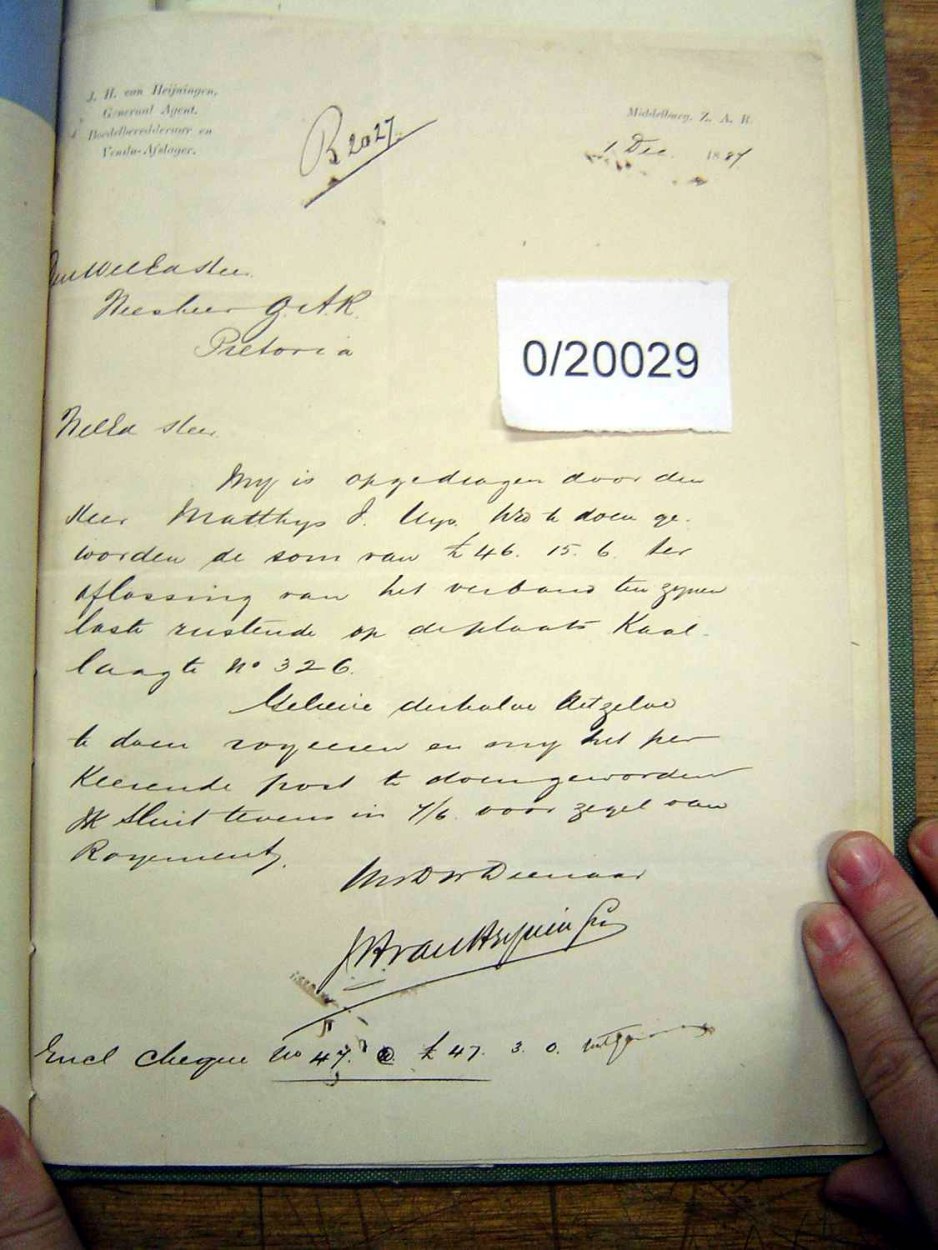 J. H. van Heijningen,
Generaal Agent.
Boedelberedderaar en
Vendu-Afslager.
B 2027
Middelburg, Z. A. R.
1 Dec. 1887
Den WelEd Heer
Weesheer Z.A.R.
Pretoria
0/20029
WelEd Heer
My is opgedragen door den
Heer Matthys J. Uys te doen ge-
worden de som van £46. 15. 6. ter
aflossing van het verband ten zynen
laste rustende op de plaats Kaal-
laagte No 326.
Gelieve derhalve hetzelve
te doen royeeren en my het per
Keerende post te doen geworden
Ik sluit tevens in 7/6 voor zegel van
Royement.
UwEDW Dienaar
J H van Heijningen
Encl cheque No 47 @ £47. 3. 0.